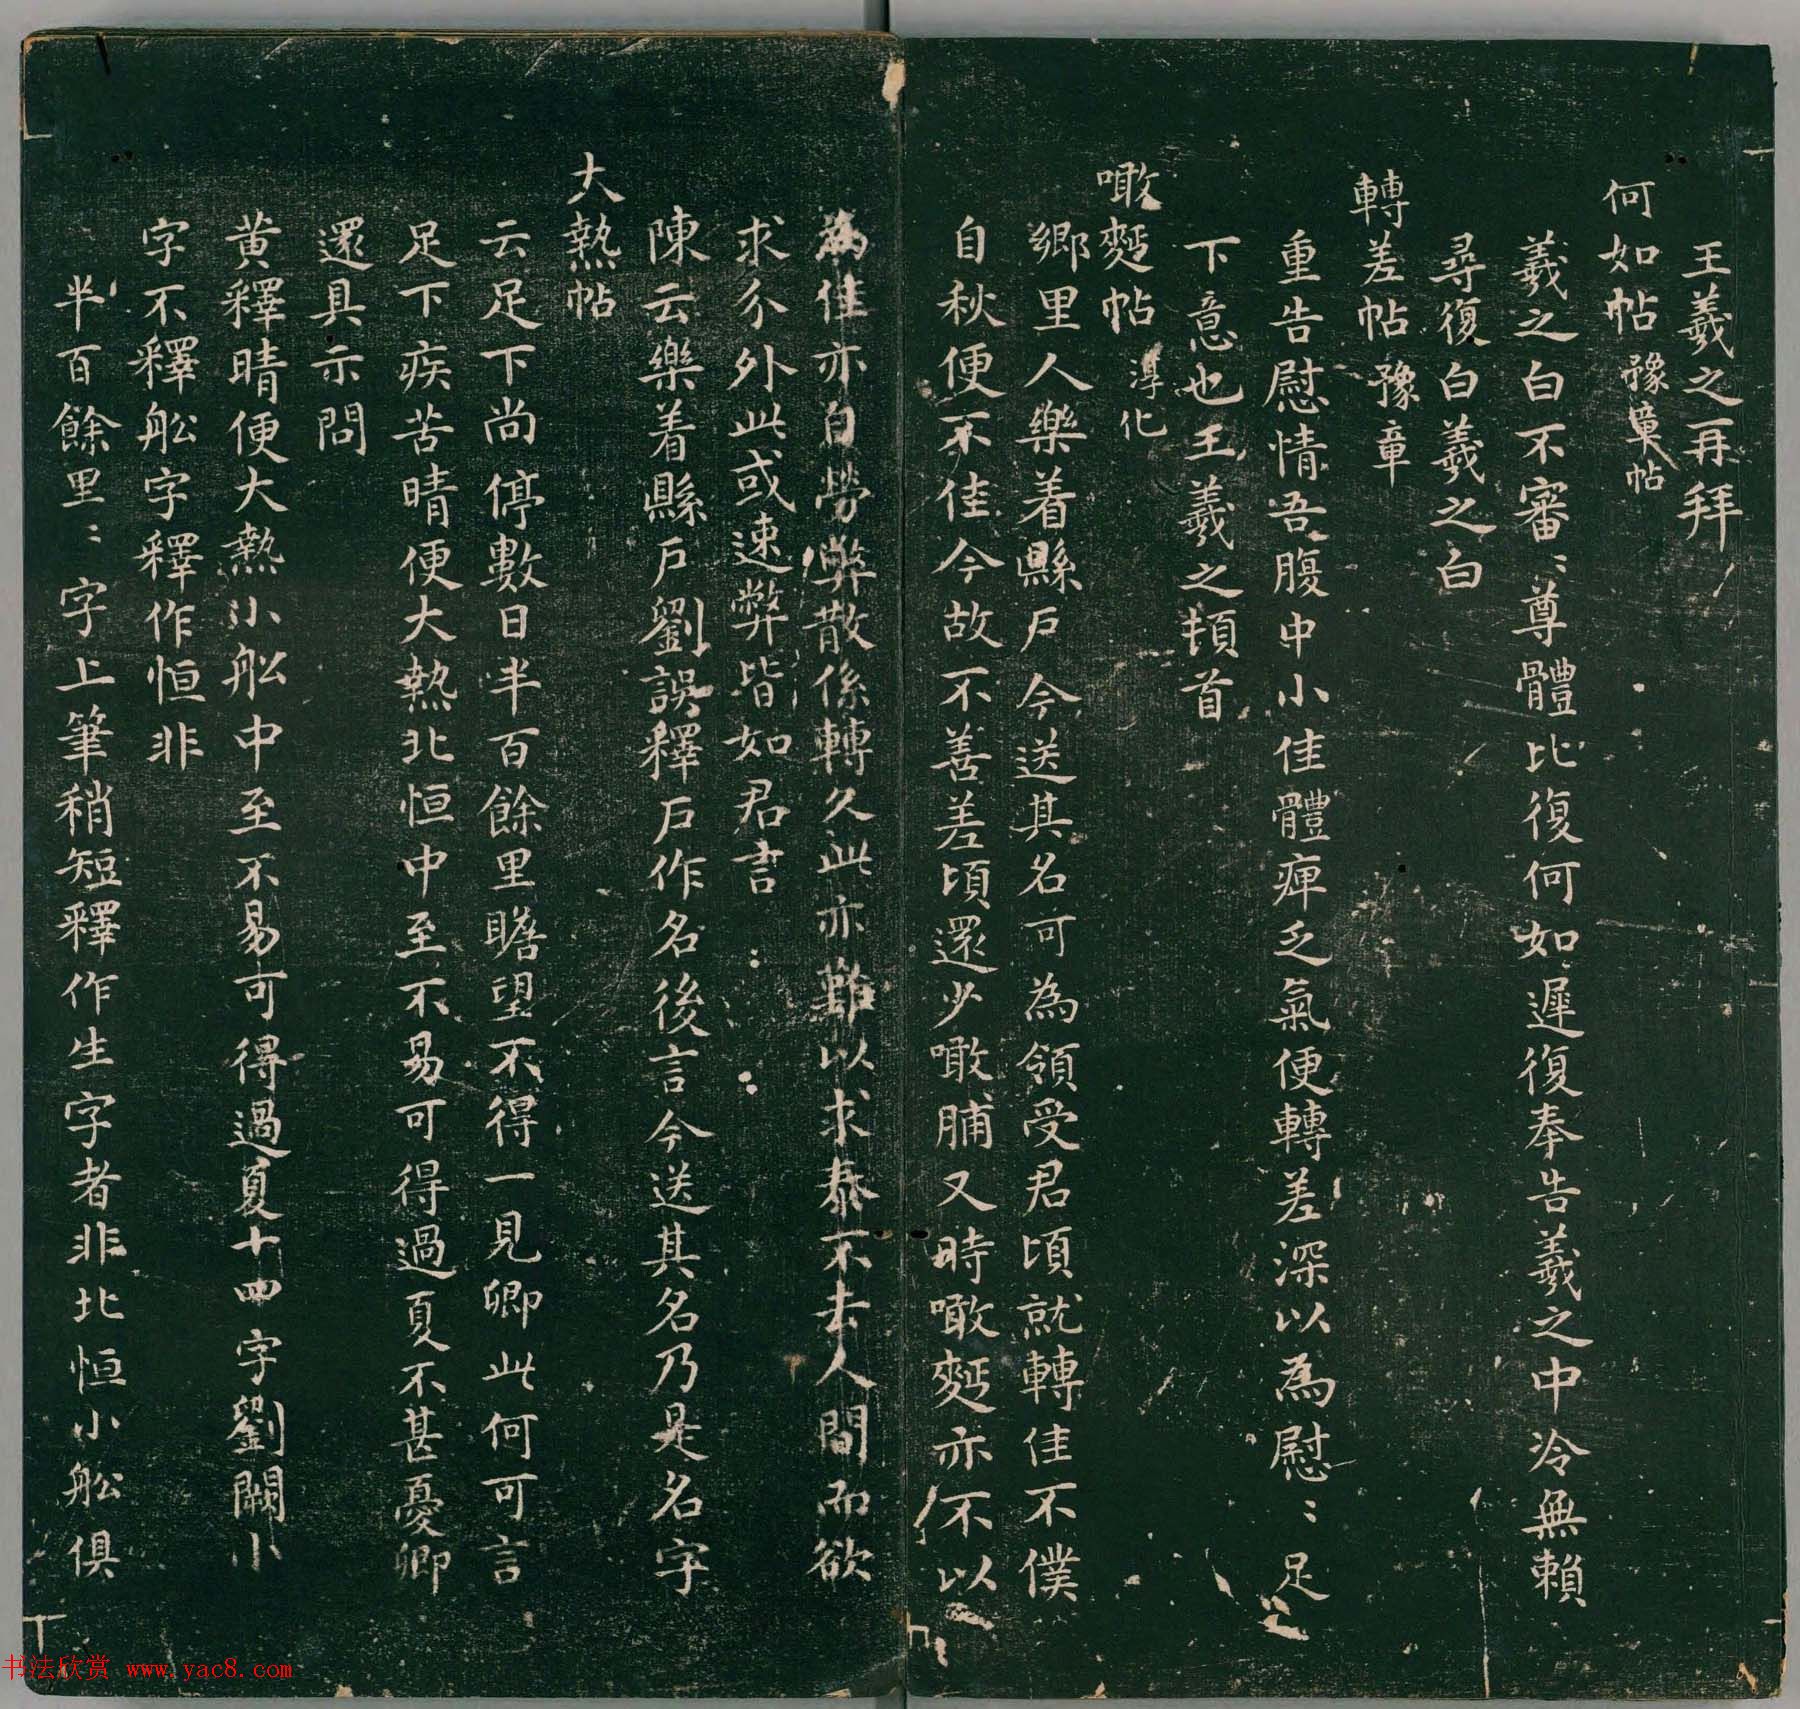 王羲之再拜
何如帖 豫章帖
羲之白不審〻尊體比復何如遲復奉告羲之中冷無賴
尋復白羲之白
轉差帖 豫章
重告慰情吾腹中小佳體痺乏氣便轉差深以為慰〻足
下意也王羲之頓首
噉麪帖 淳化
鄉里人樂着縣戶今送其名可為領受君頃就轉佳不僕
自秋便不佳今故不善差頃還少噉脯又時噉麪亦不以
為佳亦自勞弊散係轉久此亦難以求泰不去人間而欲
求分外此或速弊皆如君言
陳云樂着縣戶劉誤釋戶作名後言今送其名乃是名字
大熱帖
云足下尚停數日半百餘里瞻望不得一見卿此何可言
足下疾苦晴便大熱北恒中至不易可得過夏不甚憂卿
還具示問
黃釋晴便大熱小舩中至不易可得過夏十四字劉闕小
字不釋舩字釋作恒非
半百餘里〻字上筆稍短釋作生字者非北恒小舩俱
书法欣赏 www.yac8.com